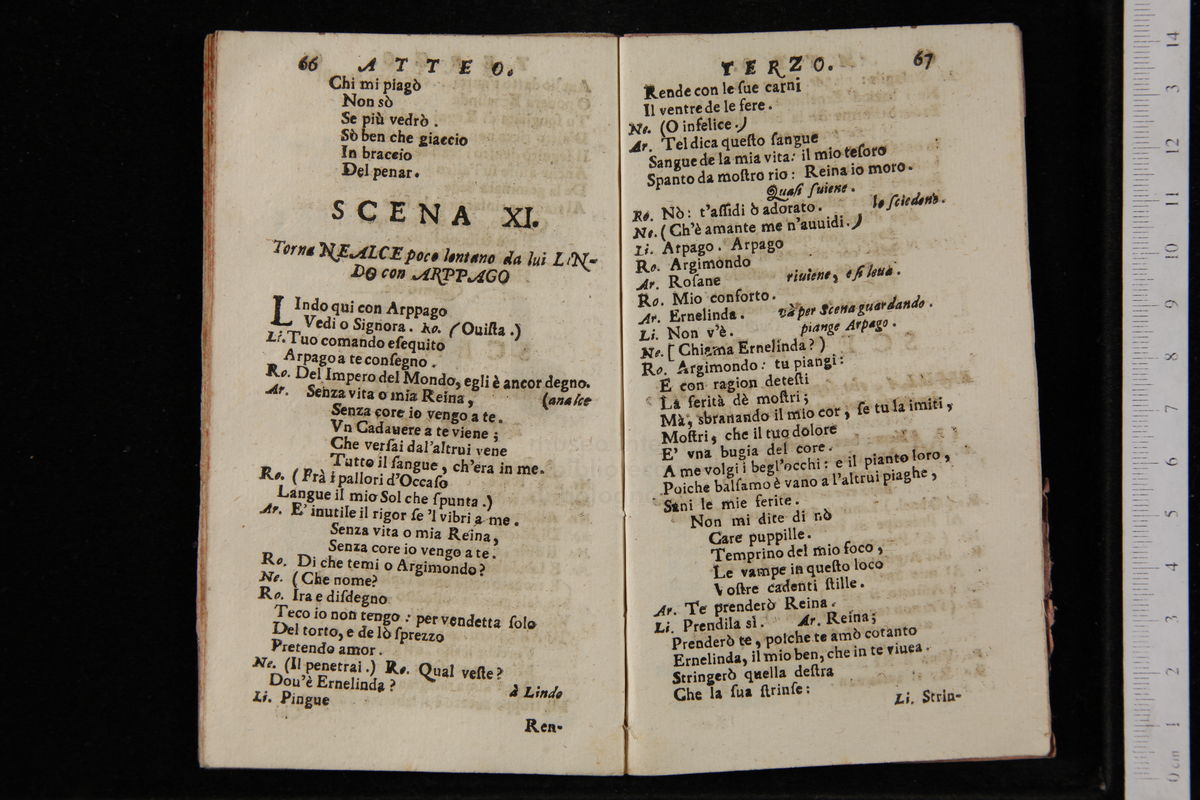 66 ATTEO.
Chi mi piagò
Non sò
Se più vedrò.
Sò ben che giaccio
In braccio
Del penar.
SCENA XI.
Torna NEALCE poco lontano da lui LIN-
DO con ARPPAGO
LIndo qui con Arppago
Vedi o Signora. Ro. (Ouiſta.)
Li. Tuo comando eſequito
Arpago a te conſegno.
Ro. Del Impero del Mondo, egli è ancor degno.
Ar. Senza vita o mia Reina, (analce
Senza core io vengo a te.
Vn Cadauere a te viene;
Che verſai dal'altrui vene
Tutto il ſangue, ch'era in me.
Ro. (Frà i pallori d'Occaſo
Langue il mio Sol che ſpunta.)
Ar. E' inutile il rigor ſe 'l vibri a me.
Senza vita o mia Reina,
Senza core io vengo a te.
Ro. Di che temi o Argimondo?
Ne. (Che nome?
Ro. Ira e diſdegno
Teco io non tengo: per vendetta ſolo
Del torto, e de lò ſprezzo
Pretendo amor.
Ne. (Il penetrai.) Ro. Qual veſte?
Dou'è Ernelinda? à Lindo
Li. Pingue
Ren-
TERZO. 67
Rende con le ſue carni
Il ventre de le fere.
Ne. (O infelice.)
Ar. Tel dica queſto ſangue
Sangue de la mia vita: il mio teſoro
Spanto da moſtro rio: Reina io moro.
Quaſi ſuiene.
Ro. Nò: t'aſſidi ò adorato. lo ſciedono.
Ne. (Ch'è amante me n'auuidi.)
Li. Arpago. Arpago
Ro. Argimondo
Ar. Roſane riuiene, e ſi leua.
Ro. Mio conforto.
Ar. Ernelinda. và per Scena guardando.
Li. Non v'è. piange Arpago.
Ne. [Chiama Ernelinda?)
Ro. Argimondo: tu piangi:
E con ragion deteſti
La ferità dè moſtri;
Mà, sbranando il mio cor, ſe tu la imiti,
Moſtri, che il tuo dolore
E' vna bugia del core.
A me volgi i begl'occhi: e il pianto loro,
Poiche balſamo è vano a l'altrui piaghe,
Sani le mie ferite.
Non mi dite di nò
Care puppille.
Temprino del mio foco,
Le vampe in queſto loco
Voſtre cadenti ſtille.
Ar. Te prenderò Reina.
Li. Prendila sì. Ar. Reina;
Prenderò te, poiche te amò cotanto
Ernelinda, il mio ben, che in te viuea.
Stringerò quella deſtra
Che la ſua ſtrinſe:
Li. Strin-